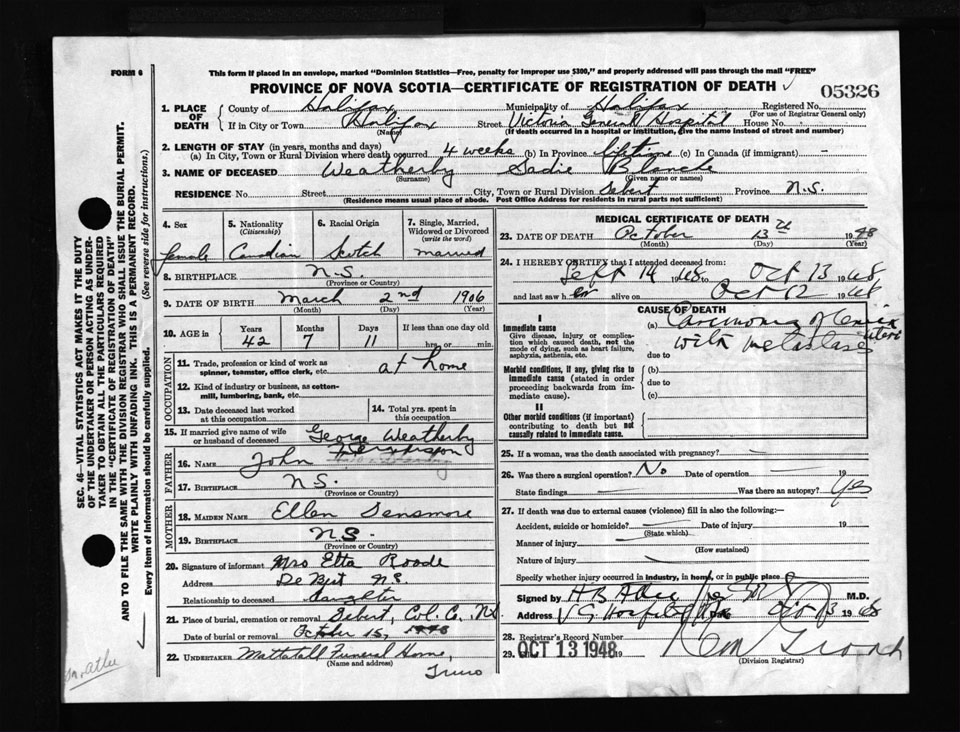 This form if placed in an envelope, marked "Dominion Statistics—Free, penalty for improper use $300," and properly addressed will pass through the mail "FREE"
FORM 6
PROVINCE OF NOVA SCOTIA—CERTIFICATE OF REGISTRATION OF DEATH
05326
1. PLACE OF DEATH
County of Halifax Municipality of Halifax Registered No.
(For use of Registrar General only)
If in City or Town Halifax Street Victoria General Hospital House No.
(Name) (If death occurred in a hospital or institution, give the name instead of street and number)
2. LENGTH OF STAY (in years, months and days)
(a) In City, Town or Rural Division where death occurred 4 weeks (b) In Province lifetime (c) In Canada (if immigrant) —
3. NAME OF DECEASED Weatherby Sadie Blanche
(Surname) (Given name or names)
RESIDENCE No. Street City, Town or Rural Division Debert Province N.S.
(Residence means usual place of abode. Post Office Address for residents in rural parts not sufficient)
4. Sex
female
5. Nationality
(Citizenship)
Canadian
6. Racial Origin
Scotch
7. Single, Married, Widowed or Divorced
(write the word)
married
8. BIRTHPLACE N.S.
(Province or Country)
9. DATE OF BIRTH March 2nd 1906
(Month) (Day) (Year)
10. AGE in
Years Months Days If less than one day old
42 7 11 hrs. or min.
OCCUPATION
11. Trade, profession or kind of work as spinner, teamster, office clerk, etc. at home
12. Kind of industry or business, as cotton-mill, lumbering, bank, etc.
13. Date deceased last worked at this occupation
14. Total yrs. spent in this occupation
15. If married give name of wife or husband of deceased George Weatherby
FATHER
16. NAME John
17. BIRTHPLACE N.S.
(Province or Country)
MOTHER
18. MAIDEN NAME Ellen Densmore
19. BIRTHPLACE N.S.
(Province or Country)
20. Signature of informant Mrs Etta Roode
Address De Bert N.S.
Relationship to deceased daughter
21. Place of burial, cremation or removal Debert, Col. Co., N.S.
Date of burial or removal October 15, 1948
22. UNDERTAKER Mattatall Funeral Home,
(Name and address)
Truro
MEDICAL CERTIFICATE OF DEATH
23. DATE OF DEATH October 13th 1948
(Month) (Day) (Year)
24. I HEREBY CERTIFY that I attended deceased from:
Sept 14 1948 to Oct 13 1948
and last saw her alive on Oct 12 1948
CAUSE OF DEATH
I
Immediate cause
Give disease, injury or complication which caused death, not the mode of dying, such as heart failure, asphyxia, asthenia, etc.
(a) Carcinoma of Cervix uteri
with metastases
due to
Morbid conditions, if any, giving rise to immediate cause (stated in order proceeding backwards from immediate cause).
(b)
due to
(c)
II
Other morbid conditions (if important) contributing to death but not causally related to immediate cause.
25. If a woman, was the death associated with pregnancy? —
26. Was there a surgical operation? No Date of operation — 19
State findings — Was there an autopsy? Yes
27. If death was due to external causes (violence) fill in also the following:—
Accident, suicide or homicide? — Date of injury 19
(State which)
Manner of injury —
(How sustained)
Nature of injury —
Specify whether injury occurred in industry, in home, or in public place
Signed by M.D.
Address V G Hospital Date Oct 13 1948
28. Registrar's Record Number
29. OCT 13 1948 19
(Division Registrar)
SEC. 46—VITAL STATISTICS ACT MAKES IT THE DUTY
OF THE UNDERTAKER OR PERSON ACTING AS UNDER-
TAKER TO OBTAIN ALL THE PARTICULARS REQUIRED
IN THE "CERTIFICATE OF REGISTRATION OF DEATH"
AND TO FILE THE SAME WITH THE DIVISION REGISTRAR WHO SHALL ISSUE THE BURIAL PERMIT.
WRITE PLAINLY WITH UNFADING INK. THIS IS A PERMANENT RECORD.
Every item of information should be carefully supplied. (See reverse side for instructions.)